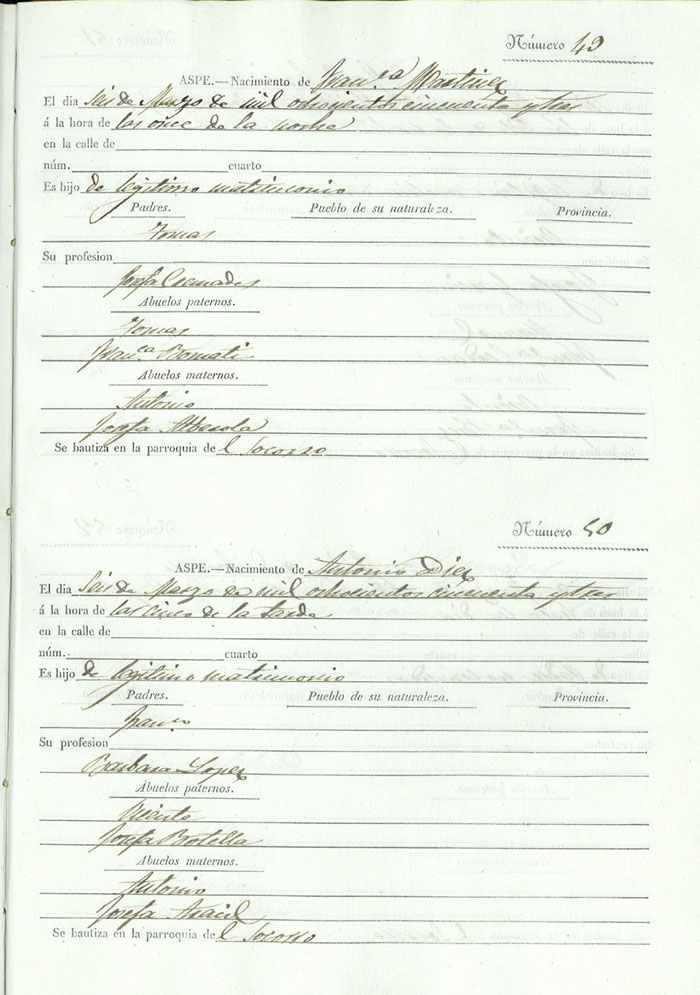 Número 49
ASPE.—Nacimiento de Fran.ca Martinez
El dia seis de Marzo de mil ochocientos cincuenta y tres
á la hora de las once de la noche
en la calle de
núm. cuarto
Es hijo de legitimo matrimonio
Padres. Pueblo de su naturaleza. Provincia.
Tomas
Su profesion
Josefa Cremades
Abuelos paternos.
Tomas
Fran.ca Bomati
Abuelos maternos.
Antonio
Josefa Alberola
Se bautiza en la parroquia del Socorro
Número 50
ASPE.—Nacimiento de Antonio Diez
El dia Seis de Marzo de mil ochocientos cincuenta y tres
á la hora de las cinco de la tarde
en la calle de
núm. cuarto
Es hijo de legitimo matrimonio
Padres. Pueblo de su naturaleza. Provincia.
Fran.co
Su profesion
Barbara Lopez
Abuelos paternos.
Vicente
Josefa Botella
Abuelos maternos.
Antonio
Josefa
Se bautiza en la parroquia del Socorro